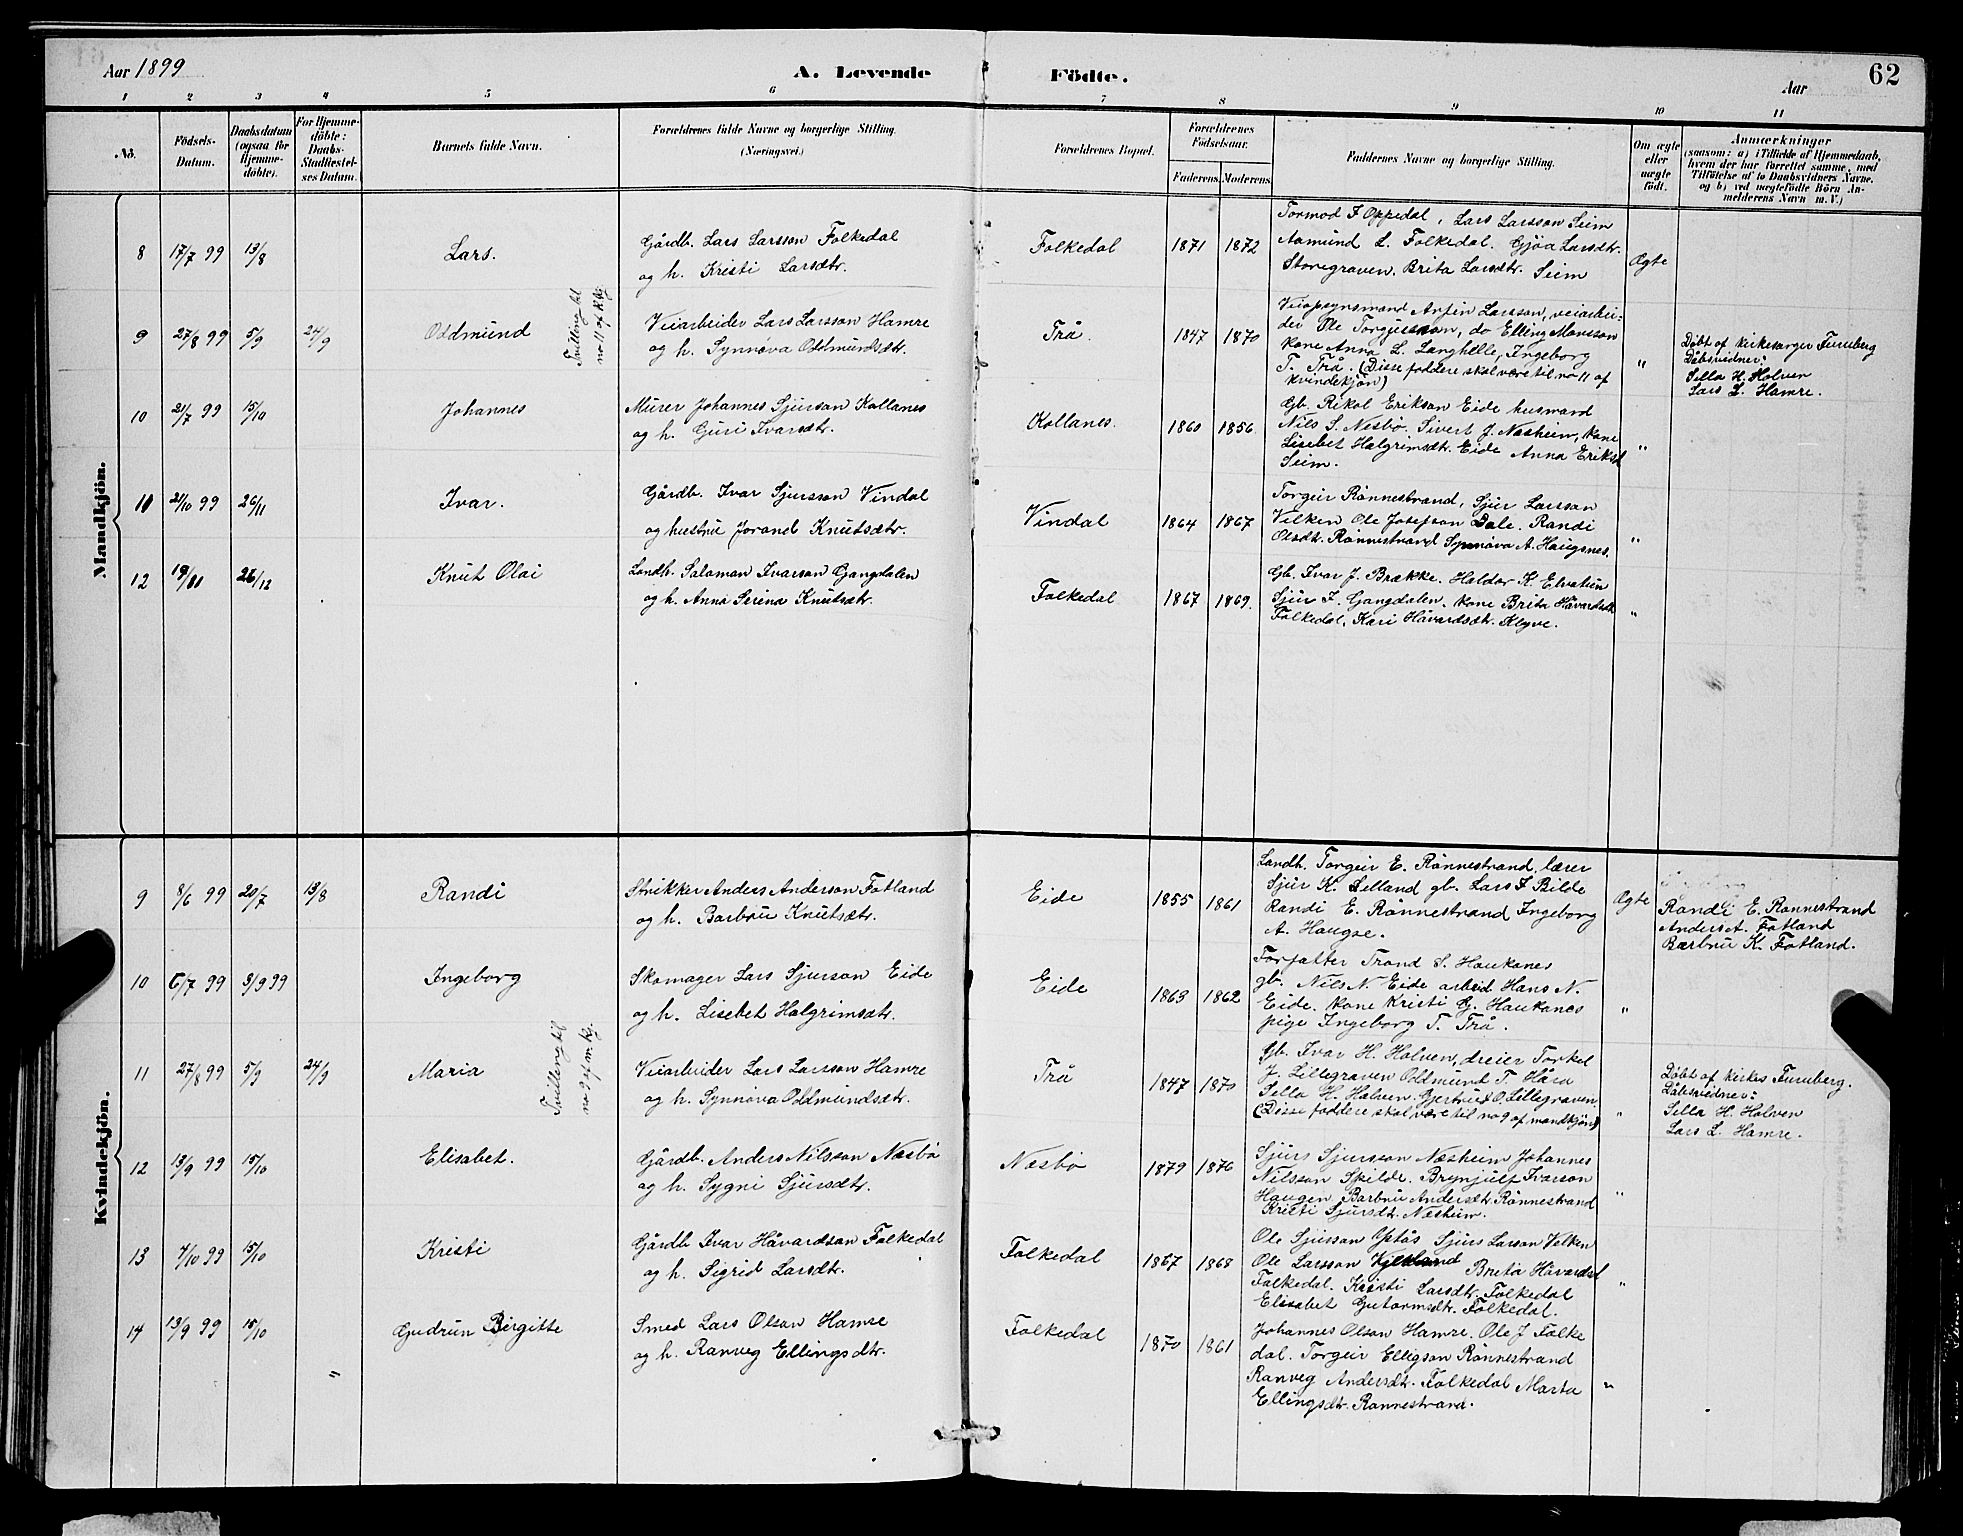 Aar 1899
A. Levende Födte.
Aar
62
1 2 3 4 5 6 7 8 9 10 11
No.
Födsels-Datum.
Daabsdatum (ogsaa for Hjemme-døbte).
For Hjemme-döbte: Daabs-Stadfæstel-ses Datum.
Barnets fulde Navn.
Forældrenes fulde Navne og borgerlige Stilling. (Næringsvei.)
Forældrenes Bopæl.
Forældrenes Födselsaar.
Faderens. Moderens.
Faddernes Navne og borgerlige Stilling.
Om ægte eller uægte födt.
Anmærkninger (saasom: a) i Tilfælde af Hjemmedaab, hvem der har forrettet samme, med Tilföielse af to Daabsvidners Navne, og b) ved uægtefödte Börn Anmelderens Navn m. V.)
Mandkjön.
8 17/7 99 13/8 Lars. Gårdb. Lars Larsson Folkedal
og h. Kristi Larsdtr.
Folkedal 1871 1872
Tormod I Oppedal, Lars Larsson Seim
Aamund L. Folkedal. Gjöa Larsdtr.
Storegraven. Brita Larsdtr. Seim
Ægte
9 27/8 99 5/9 24/9 Oddmund
Tvilling til
no 11 af k.kj.
Veiarbeider Lars Larsson Hamre
og h. Synnøva Oddmundsdtr.
Trå. 1847 1870
Veiopsynsmand Anfin Larsson, veiarbei-
der Ole Torgjersson, do Elling Monsson
kone Anna L. Langhelle, Ingeborg
T. Trå. (Disse faddere skal være til no 11 af
kvindekjön)
"
Døbt af kirkesanger Furuberg
Dåbsvidner:
Sella H. Holven
Lars L. Hamre.
10 21/7 99 15/10 Johannes
Murer Johannes Sjurson Kollanes
og h. Guri Ivarsdtr.
Kollanes. 1860 1856
Gb. Rikol Erikson Eide husmand
Nils S. Nesbö. Sivert J. Næsheim, kone
Lisebet Halgrimsdtr. Eide Anna Eriksd
Seim.
"
11 21/10 99 26/11 Ivar.
Gårdb. Ivar Sjursson Vindal
og hustru Jorand Knutsdtr.
Vindal 1864 1867
Torgeir Rønnestrand, Sjur Larsson
Velken Ole Josefson Dale. Randi
Olsdtr. Rønnestrand Synnøva A. Haugsnes.
"
12 19/11 26/12 Knut Olai
Landh. Salamon Ivarson Gangdalen
og h. Anna Serina Knutsdtr.
Folkedal 1867 1869.
Gb. Ivar J. Brække. Haldor K. Elvatun
Sjur I. Gangdalen. kone Brita Håvardsdtr
Folkedal. Kari Håvardsdtr. Klyve.
"
Kvindekjön.
9 8/6 99 20/7 13/8 Randi
Strikker Anders Anderson Fotland
og h. Barbru Knutsdtr.
Eide 1855 1861
Landh. Torgeir E. Rønnestrand, lærer
Sjur K. Lelland gb. Lars I Bilde
Randi E. Rønnestrand Ingeborg
A. Haugse.
Ægte
Randi E. Rønnestrand
Anders A. Fotland
Barbru K. Fotland.
10 6/7 99 3/9 99 Ingeborg
Skomager Lars Sjurson Eide
og h. Lisebet Halgrimsdtr.
Eide 1863 1862
Forfatter Trond S. Haukanes
gb. Nils N. Eide arbeid Hans N.
Eide. kone Kristi G. Haukanes
pige Ingeborg T. Trå.
"
11 27/8 99 5/9 24/9 Maria
Tvilling til
no 9 af m. kj.
Veiarbeider Lars Larsson Hamre
og h. Synnøva Oddmundsdtr.
Trå 1847 1870
Gb. Ivar H. Holven, dreier Torkel
J. Lillegraven Oddmund T. Håra
Sella H. Holven. Gjertrud O. Lillegraven
(Disse faddere skal være til no 9 af mandkjön)
"
Døbt af kirkes Furuberg.
Dåbsvidner:
Sella H. Holven
Lars L. Hamre.
12 13/9 99 15/10 Elisabet.
Gårdb. Anders Nilsson Næsbö
og h. Sygni Sjursdtr.
Næsbö 1879 1876
Sjurs Sjursson Næsheim Johannes
Nilsson Skilde. Brynjulf Ivarson
Haugen Barbru Andersdtr. Rønnestrand
Kristi Sjursdtr. Næsheim.
"
13 7/10 99 15/10 Kristi
Gårdb Ivar Håvardson Folkedal
og h. Sigrid Larsdtr.
Folkedal 1867 1868
Ole Sjursson Opsås Sjurs Larson Velken
Ole Larsson Brita Håvardsd
Folkedal. Kristi Larsdtr. Folkedal
Elisabet Gutormsdtr. Folkedal.
"
14 13/9 99 15/10 " Gudrun Birgitte
Smed Lars Olson Hamre
og h. Ranveg Ellingsdtr.
Folkedal 1870 1861
Johannes Olson Hamre. Ole J Folke
dal. Torgeir Elligson Rønnestrand
Ranveg Andersdtr. Folkedal Marta
Ellingsdtr. Rønnestrand.
"